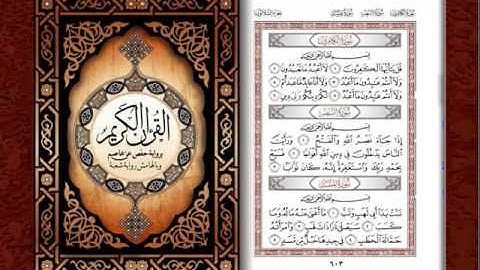 القرآن الكريم
برواية حفص عن عاصم
وبالهامش رواية شعبة
سورة الكافرون
بسم الله الرحمن الرحيم
قُلْ يَٰٓأَيُّهَا ٱلْكَٰفِرُونَ ١ لَآ أَعْبُدُ مَا تَعْبُدُونَ ٢
وَلَآ أَنتُمْ عَٰبِدُونَ مَآ أَعْبُدُ ٣ وَلَآ أَنَا۠ عَابِدٌ مَّا عَبَدتُّمْ ٤
وَلَآ أَنتُمْ عَٰبِدُونَ مَآ أَعْبُدُ ٥ لَكُمْ دِينُكُمْ وَلِيَ دِينِ ٦
سورة النصر
بسم الله الرحمن الرحيم
إِذَا جَآءَ نَصْرُ ٱللَّهِ وَٱلْفَتْحُ ١ وَرَأَيْتَ
ٱلنَّاسَ يَدْخُلُونَ فِى دِينِ ٱللَّهِ أَفْوَاجًا ٢ فَسَبِّحْ
بِحَمْدِ رَبِّكَ وَٱسْتَغْفِرْهُ إِنَّهُۥ كَانَ تَوَّابًۢا ٣
سورة المسد
بسم الله الرحمن الرحيم
تَبَّتْ يَدَآ أَبِى لَهَبٍ وَتَبَّ ١ مَآ أَغْنَىٰ عَنْهُ مَالُهُۥ وَمَا
كَسَبَ ٢ سَيَصْلَىٰ نَارًا ذَاتَ لَهَبٍ ٣ وَٱمْرَأَتُهُۥ
حَمَّالَةَ ٱلْحَطَبِ ٤ فِى جِيدِهَا حَبْلٌ مِّن مَّسَدٍۭ ٥
٦٠٣